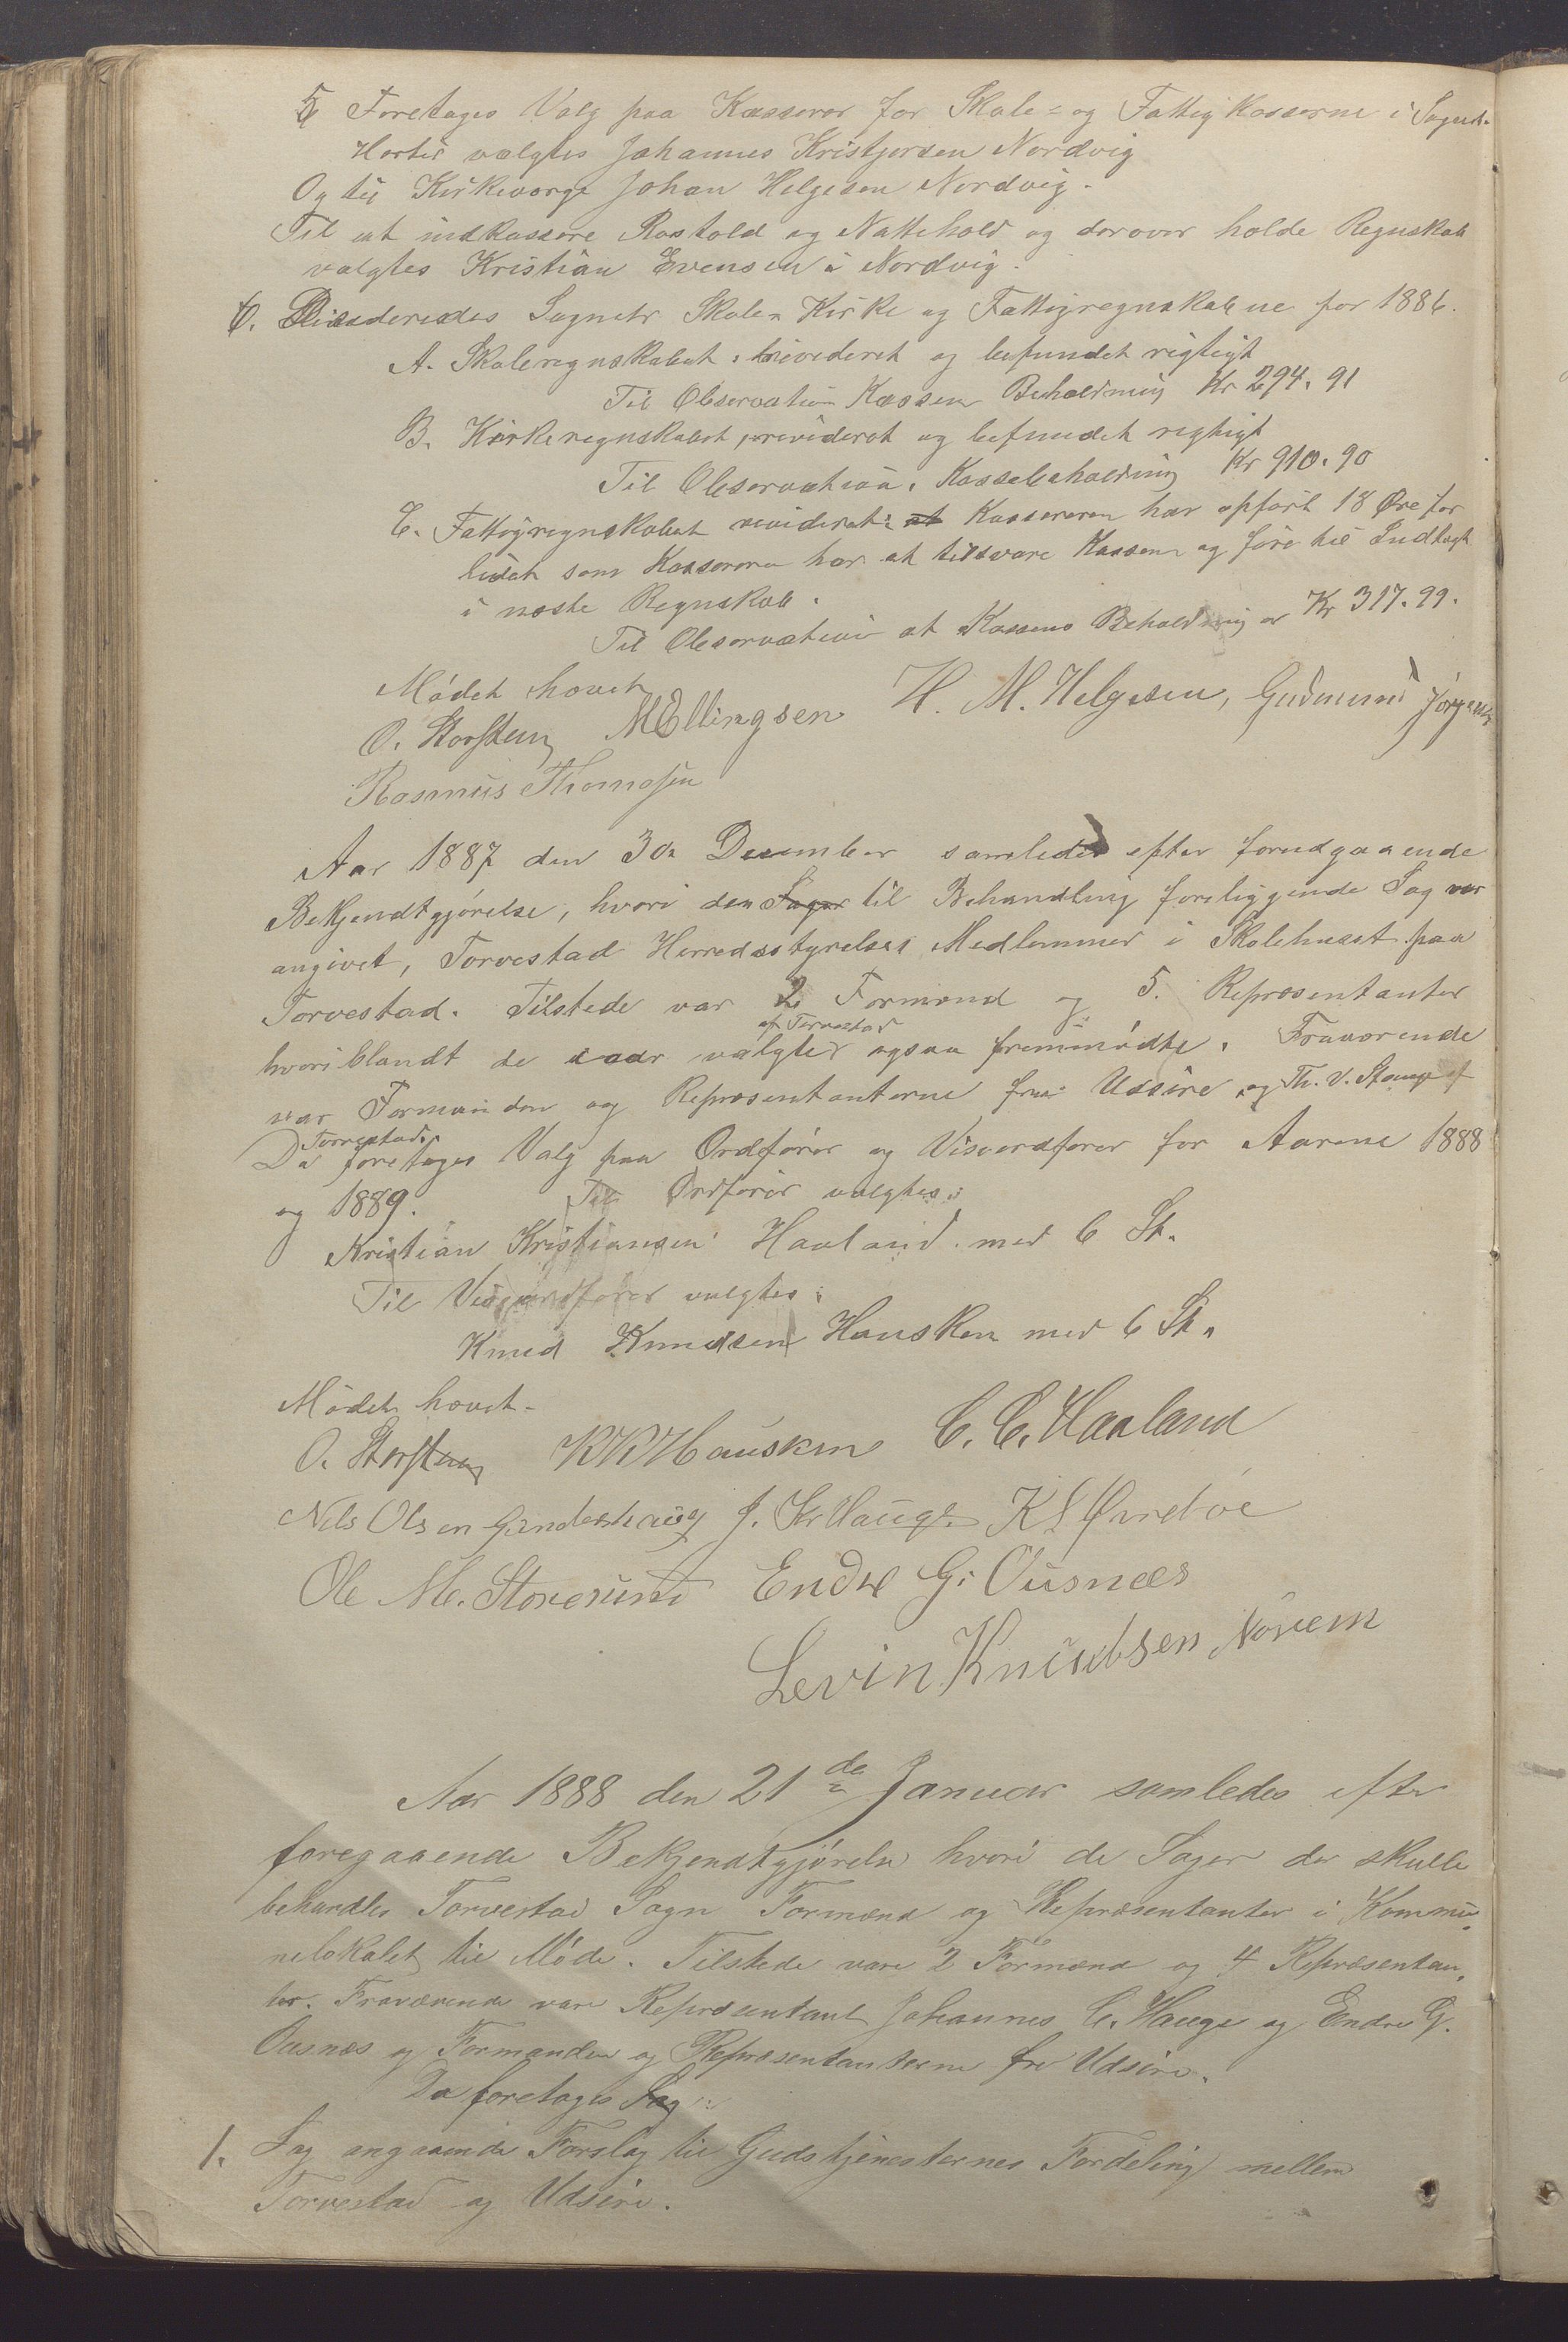 5 Foretages Valg paa Kasserer for Skole- og Fattigkasserne i Sognet.
Hertil valgtes Johannes Kristjersen Nordvig
Og til Kirkeværge Johan Helgesen Nordvig.
Til at indkassere Rostold og Nattehold og derover holde Regnskab
valgtes Kristian Evensen i Nordvig.
6. Decideredes Sognets Skole- Kirke og Fattigregnskaberne for 1886.
A. Skoleregnskabet revideret og befundet rigtigt
Til Observation Kassens Beholdning Kr 294.91
B. Kirkeregnskabet, revideret og befundet rigtigt
Til Observation, Kassebeholdning Kr 910.90
C. Fattigregnskabet revideret: at Kassereren har opført 18 Øre for
lidet som Kassereren har at tilsvare Kassen og føre til Indtægt
i næste Regnskab.
Til Observation at Kassens Beholdning er Kr 317.99.
Mødet hævet
O. Storsteen MEllingsen H. M. Helgesen, Gudmund Jørgensen
Rasmus Thomasen
Aar 1887 den 30. December samledes efter forudgaaende
Bekjendtgjørelse, hvori den Sager til Behandling foreliggende Sag var
angivet, Torvestad Herredsstyrelses Medlemmer i Skolehuset paa
Torvestad. Tilstede var 2 Formænd og 5. Repræsentanter
af Torvestad
hvoriblandt de iaar valgte ogsaa fremmødte. Fraværende
var Formanden og Repræsentanterne fra Udsire og Th. V. Stange af
Torvestad.
Da foretages Valg paa Ordfører og Viseordfører for Aarene 1888
og 1889. Til Ordfører valgtes:
Kristian Kristiansen Haaland med 6 St.
Til Viseordfører valgtes:
Knud Knudsen Hausken med 6 St.
Mødet hævet.
O. Storsteen KKHausken C. C. Haaland
Nils Olsen Gunderhaug J. Kr Hauge K S Øvrebøe
Ole M. Storesund Endre G. Ousnæs
Levin Knudsen Norem
Aar 1888 den 21de Januar samledes efter
foregaaende Bekjendtgjørelse hvori de Sager der skulle
behandles Torvestad Sogn Formænd og Repræsentanter i Kommu-
nelokalet til Møde. Tilstede vare 2 Formænd og 4 Repræsentan-
ter. Fraværende vare Repræsentant Johannes C. Hauge og Endre G.
Ousnæs og Formanden og Repræsentanterne fra Udsire.
Da foretages Sag:
1. Sag angaaende Forslag til Gudstjenesternes Fordeling mellem
Torvestad og Udsire.